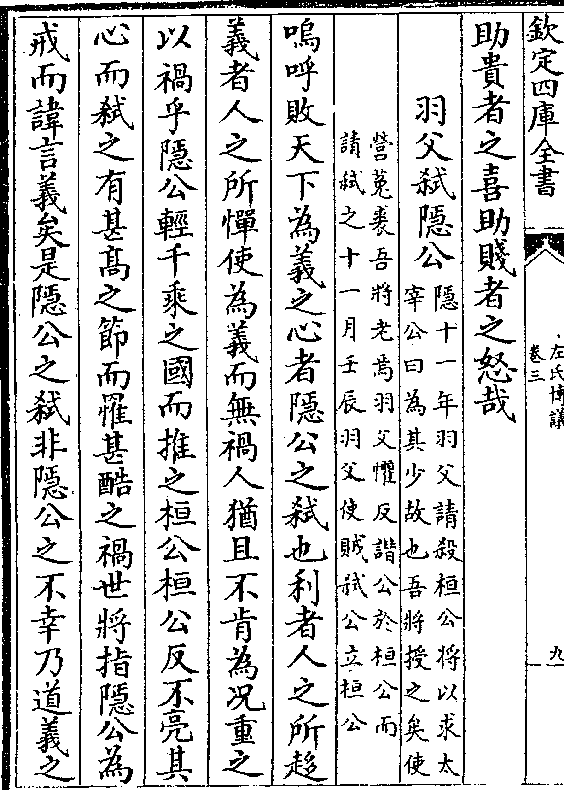 欽定四庫全書
左氏博議
卷三
九
助貴者之喜助賤者之怒哉
羽父弑隱公
隱十一年羽父請殺桓公將以求太
宰公曰為其少故也吾將授之矣使
營菟裘吾將老焉羽父懼反譖公於桓公而
請弑之十一月壬辰羽父使賊弑公立桓公
嗚呼敗天下為義之心者隱公之弑也利者人之所趍
義者人之所憚使為義而無禍人猶且不肯為况重之
以禍乎隱公輕千乘之國而推之桓公桓公反不亮其
心而弑之有甚髙之節而罹甚酷之禍世將指隱公為
戒而諱言義矣是隱公之弑非隱公之不幸乃道義之